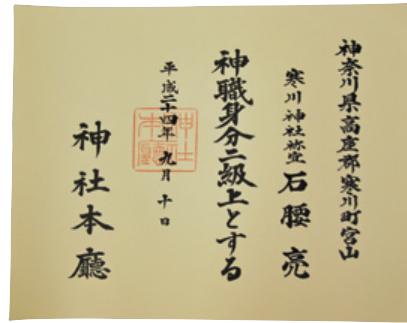 神奈川県高座郡寒川町宮山
寒川神社祢宜 石腰亮
神職身分二級上とする
平成二十四年九月十日
神社本廳